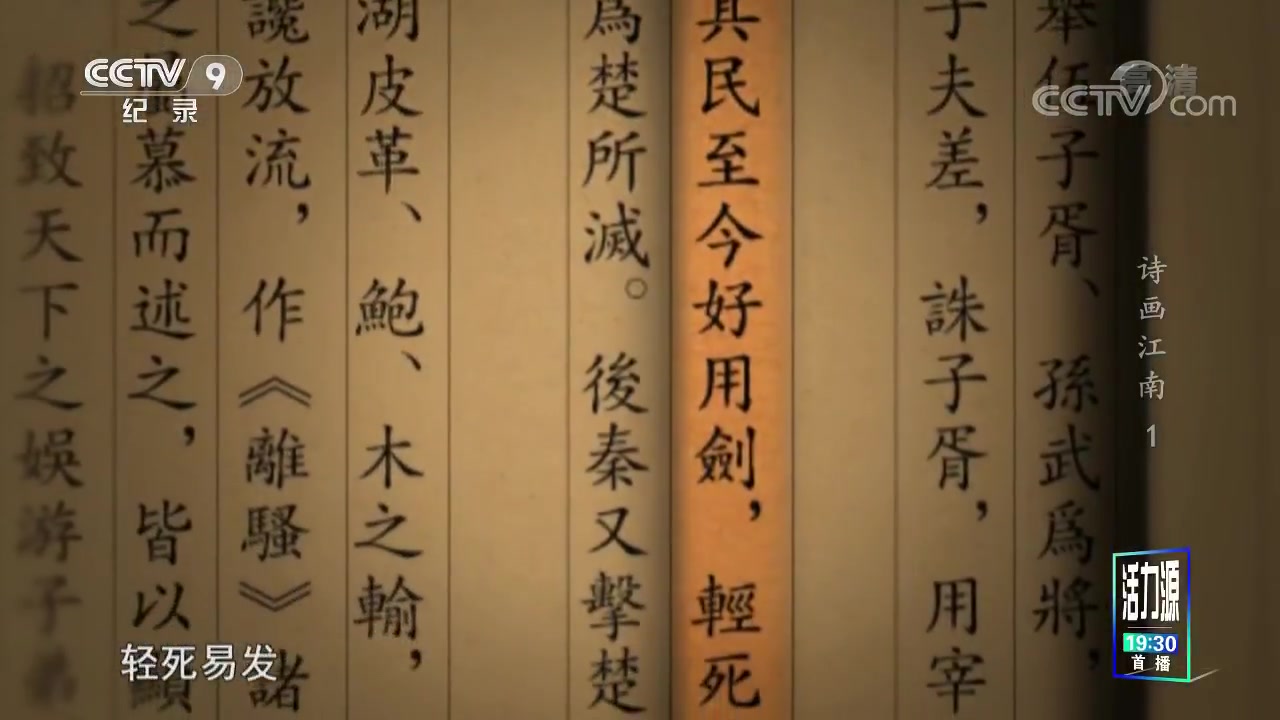 舉伍子胥、孫武爲將,
子夫差,誅子胥,用宰
其民至今好用劍,輕死
爲楚所滅。後秦又擊楚
湖皮革、鮑、木之輸,
讒放流,作《離騷》諸
慕而述之,皆以顯
招致天下之娛游子弟
CCTV 9
纪录
高清
CCTV com
诗画江南 1
活力源
19:30
首播
轻死易发